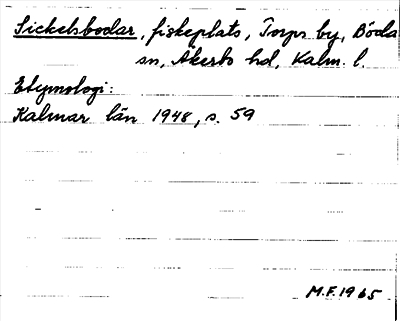 Sickelsbodar, fiskeplats, Torps by, Böda
sn, Åkerbo hd, Kalm. l.
Etymologi:
Kalmar län 1948, s. 59
M.F. 1965